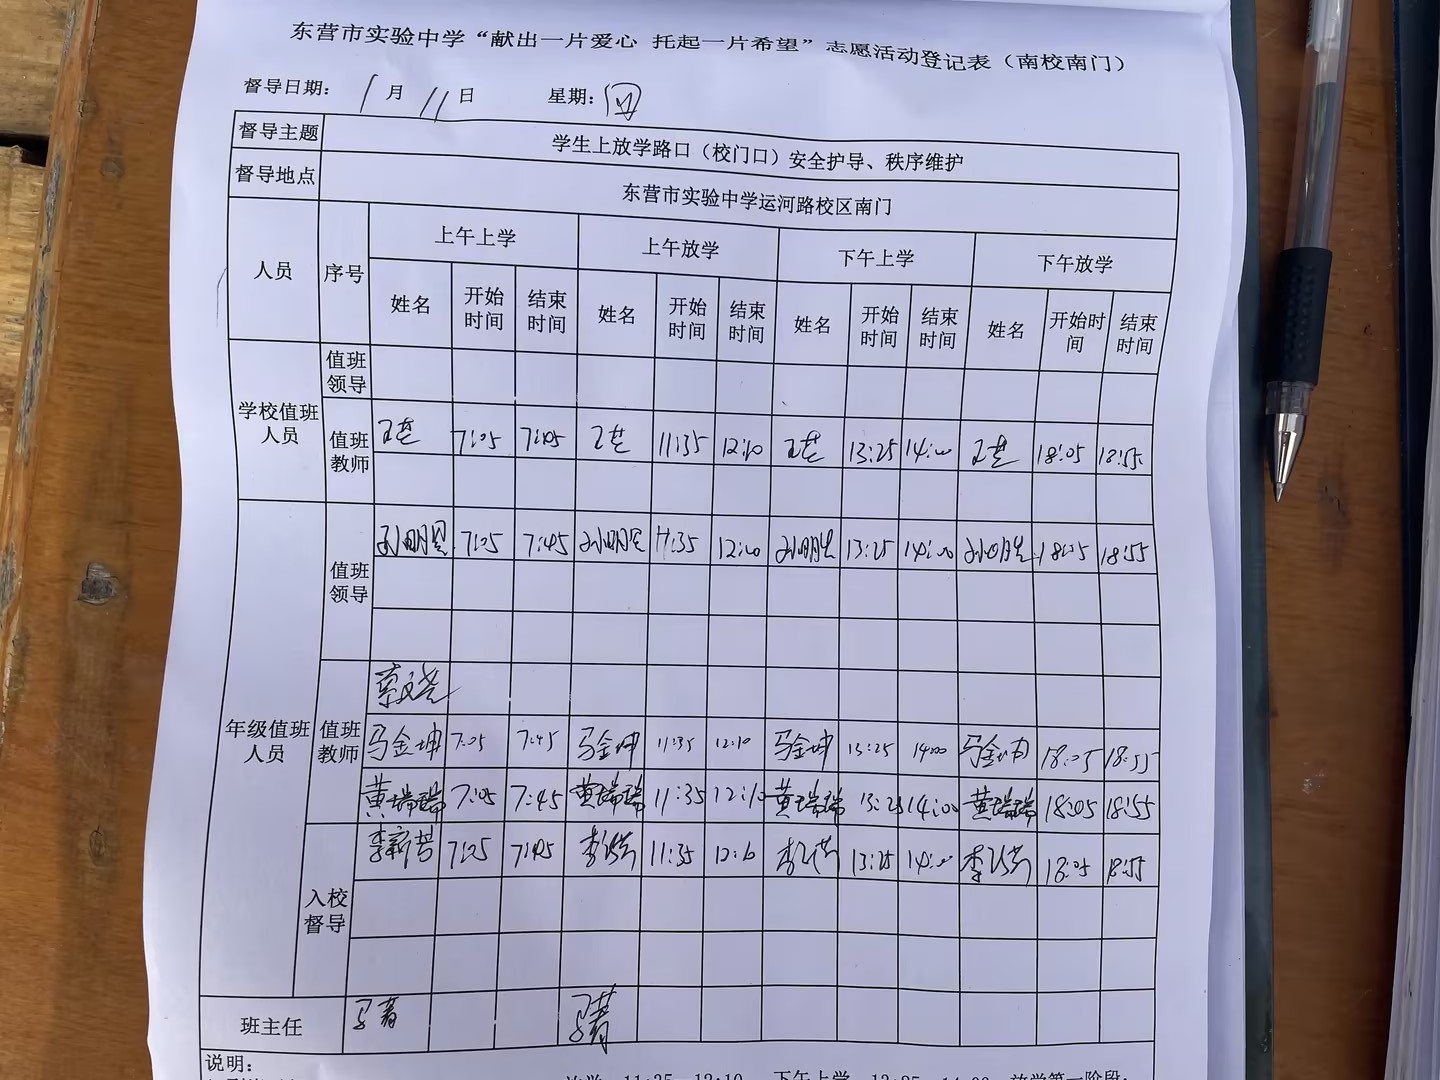 东营市实验中学“献出一片爱心 托起一片希望”志愿活动登记表（南校南门）
督导日期： 1月 11日 星期：四
督导主题 学生上放学路口（校门口）安全护导、秩序维护
督导地点 东营市实验中学运河路校区南门
人员 序号 上午上学 上午放学 下午上学 下午放学
姓名 开始时间 结束时间 姓名 开始时间 结束时间 姓名 开始时间 结束时间 姓名 开始时间 结束时间
学校值班人员 值班领导
值班教师 7:05 7:45 11:35 12:10 13:25 14:00 18:05 18:55
年级值班人员 值班领导 7:05 7:45 11:35 12:10 13:25 14:00 18:05 18:55
值班教师
马金坤 7:05 7:45 马金坤 11:35 12:10 马金坤 13:25 14:00 马金坤 18:05 18:55
黄瑞瑞 7:05 7:45 黄瑞瑞 11:35 12:10 黄瑞瑞 13:25 14:00 黄瑞瑞 18:05 18:55
入校督导 7:05 7:45 11:35 12:10 13:25 14:00 18:05 18:55
班主任
说明：